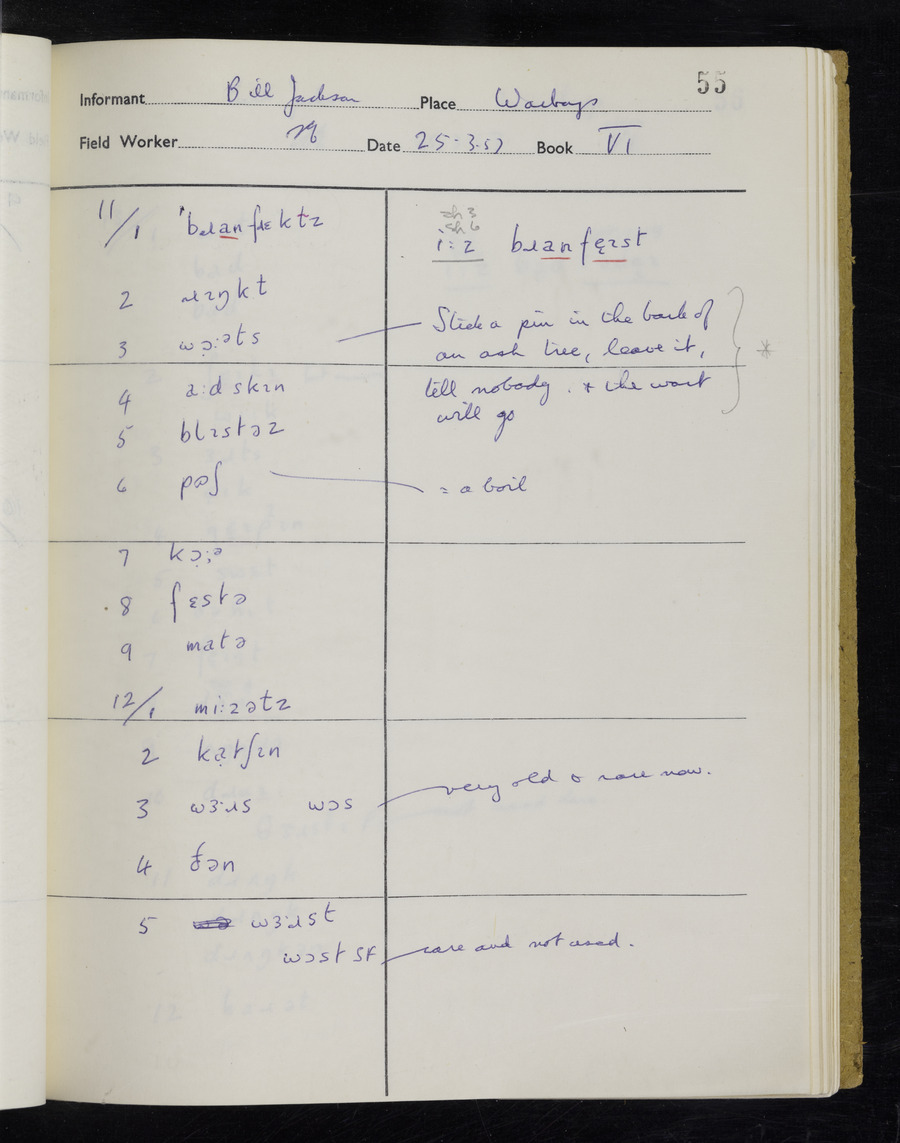 55
Informant Bill Jackson Place Warboys
Field Worker Date 25-3-57 Book VI
11/1 ˈbɹanfɹɛktz
i:2 bɹanfɛɪst
2 ɹɪŋkt
3 wɔ:əts
Stick a pin in the bark of
an ash tree, leave it,
tell nobody. + the wart
will go
*
4 a:dskɪn
5 blɪstəz
6 pəʃ
= a boil
7 kɔ:ə
8 fɛstə
9 matə
12/1 mi:zətz
2 katʃɪn
3 wɜ:ɹs wɔs
very old & rare now.
4 ðən
5 wɜ:ɹst
wɔst SF
rare and not used.